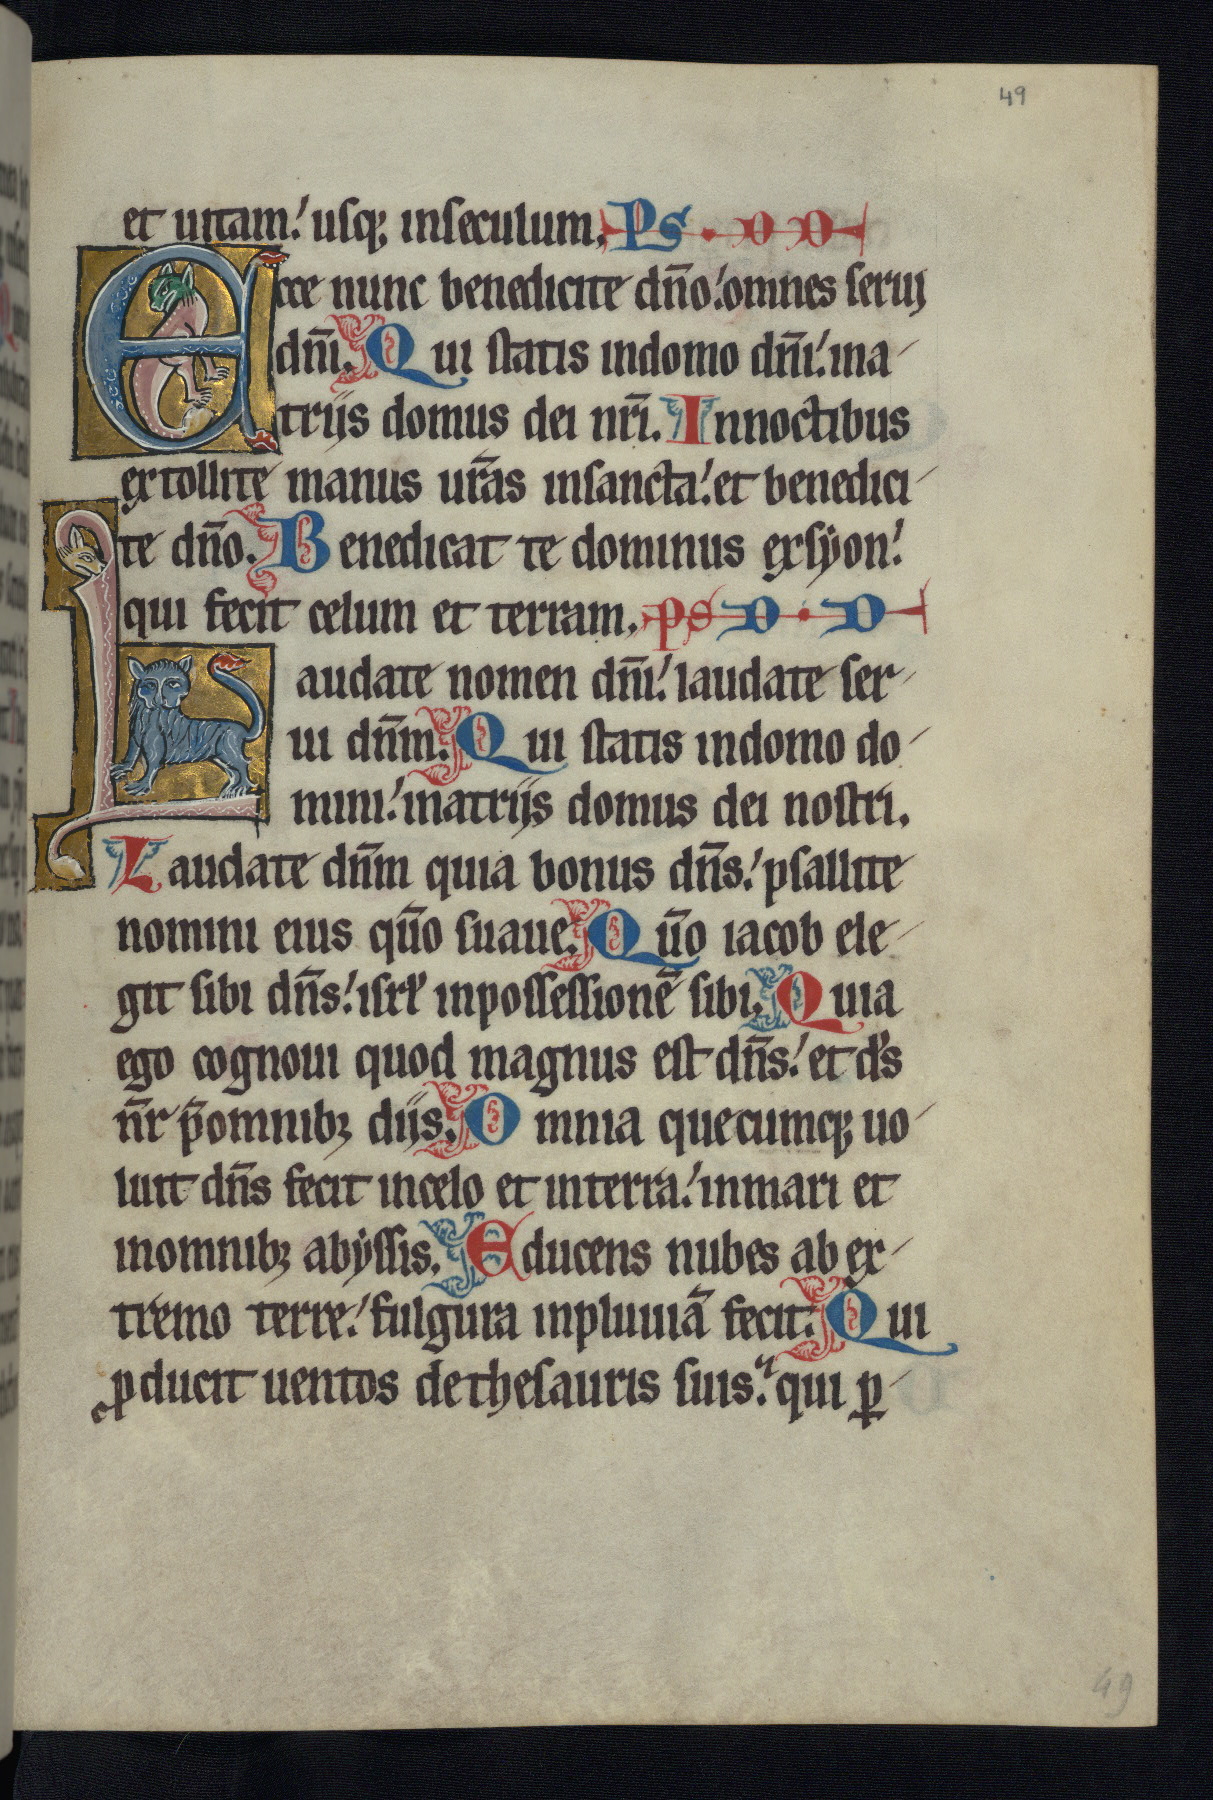 49
et uitam! usq; inseculum. PS.
Ecce nunc benedicite dn̄o! omnes seruj
dn̄i. Qui statis indomo dn̄i! ina
triis domus dei nr̄i. Innoctibus
extollite manus ur̄as insancta! et benedici
te dn̄o. Benedicat te dominus exsyon!
qui fecit celum et terram. PS.
Laudate nomen dn̄i! laudate ser
ui dn̄m. Qui statis indomo do
mini! inatriis domus dei nostri.
Laudate dn̄m quia bonus dn̄s! psallite
nomini eius qūo suaue. Qūo iacob ele
git sibi dn̄s! isrł inpossessionē sibi. Quia
ego cognoui quod magnus est dn̄s! et ds̄
nr̄ p̄omnibꝫ diis. Omnia quecumq; uo
luit dn̄s fecit incelo et interra! inmari et
inomnibꝫ abyssis. Educens nubes ab ex
tremo terre! fulgura inpluuiā fecit. Qui
ꝓducit uentos dethesauris suis. qui ꝑ
49